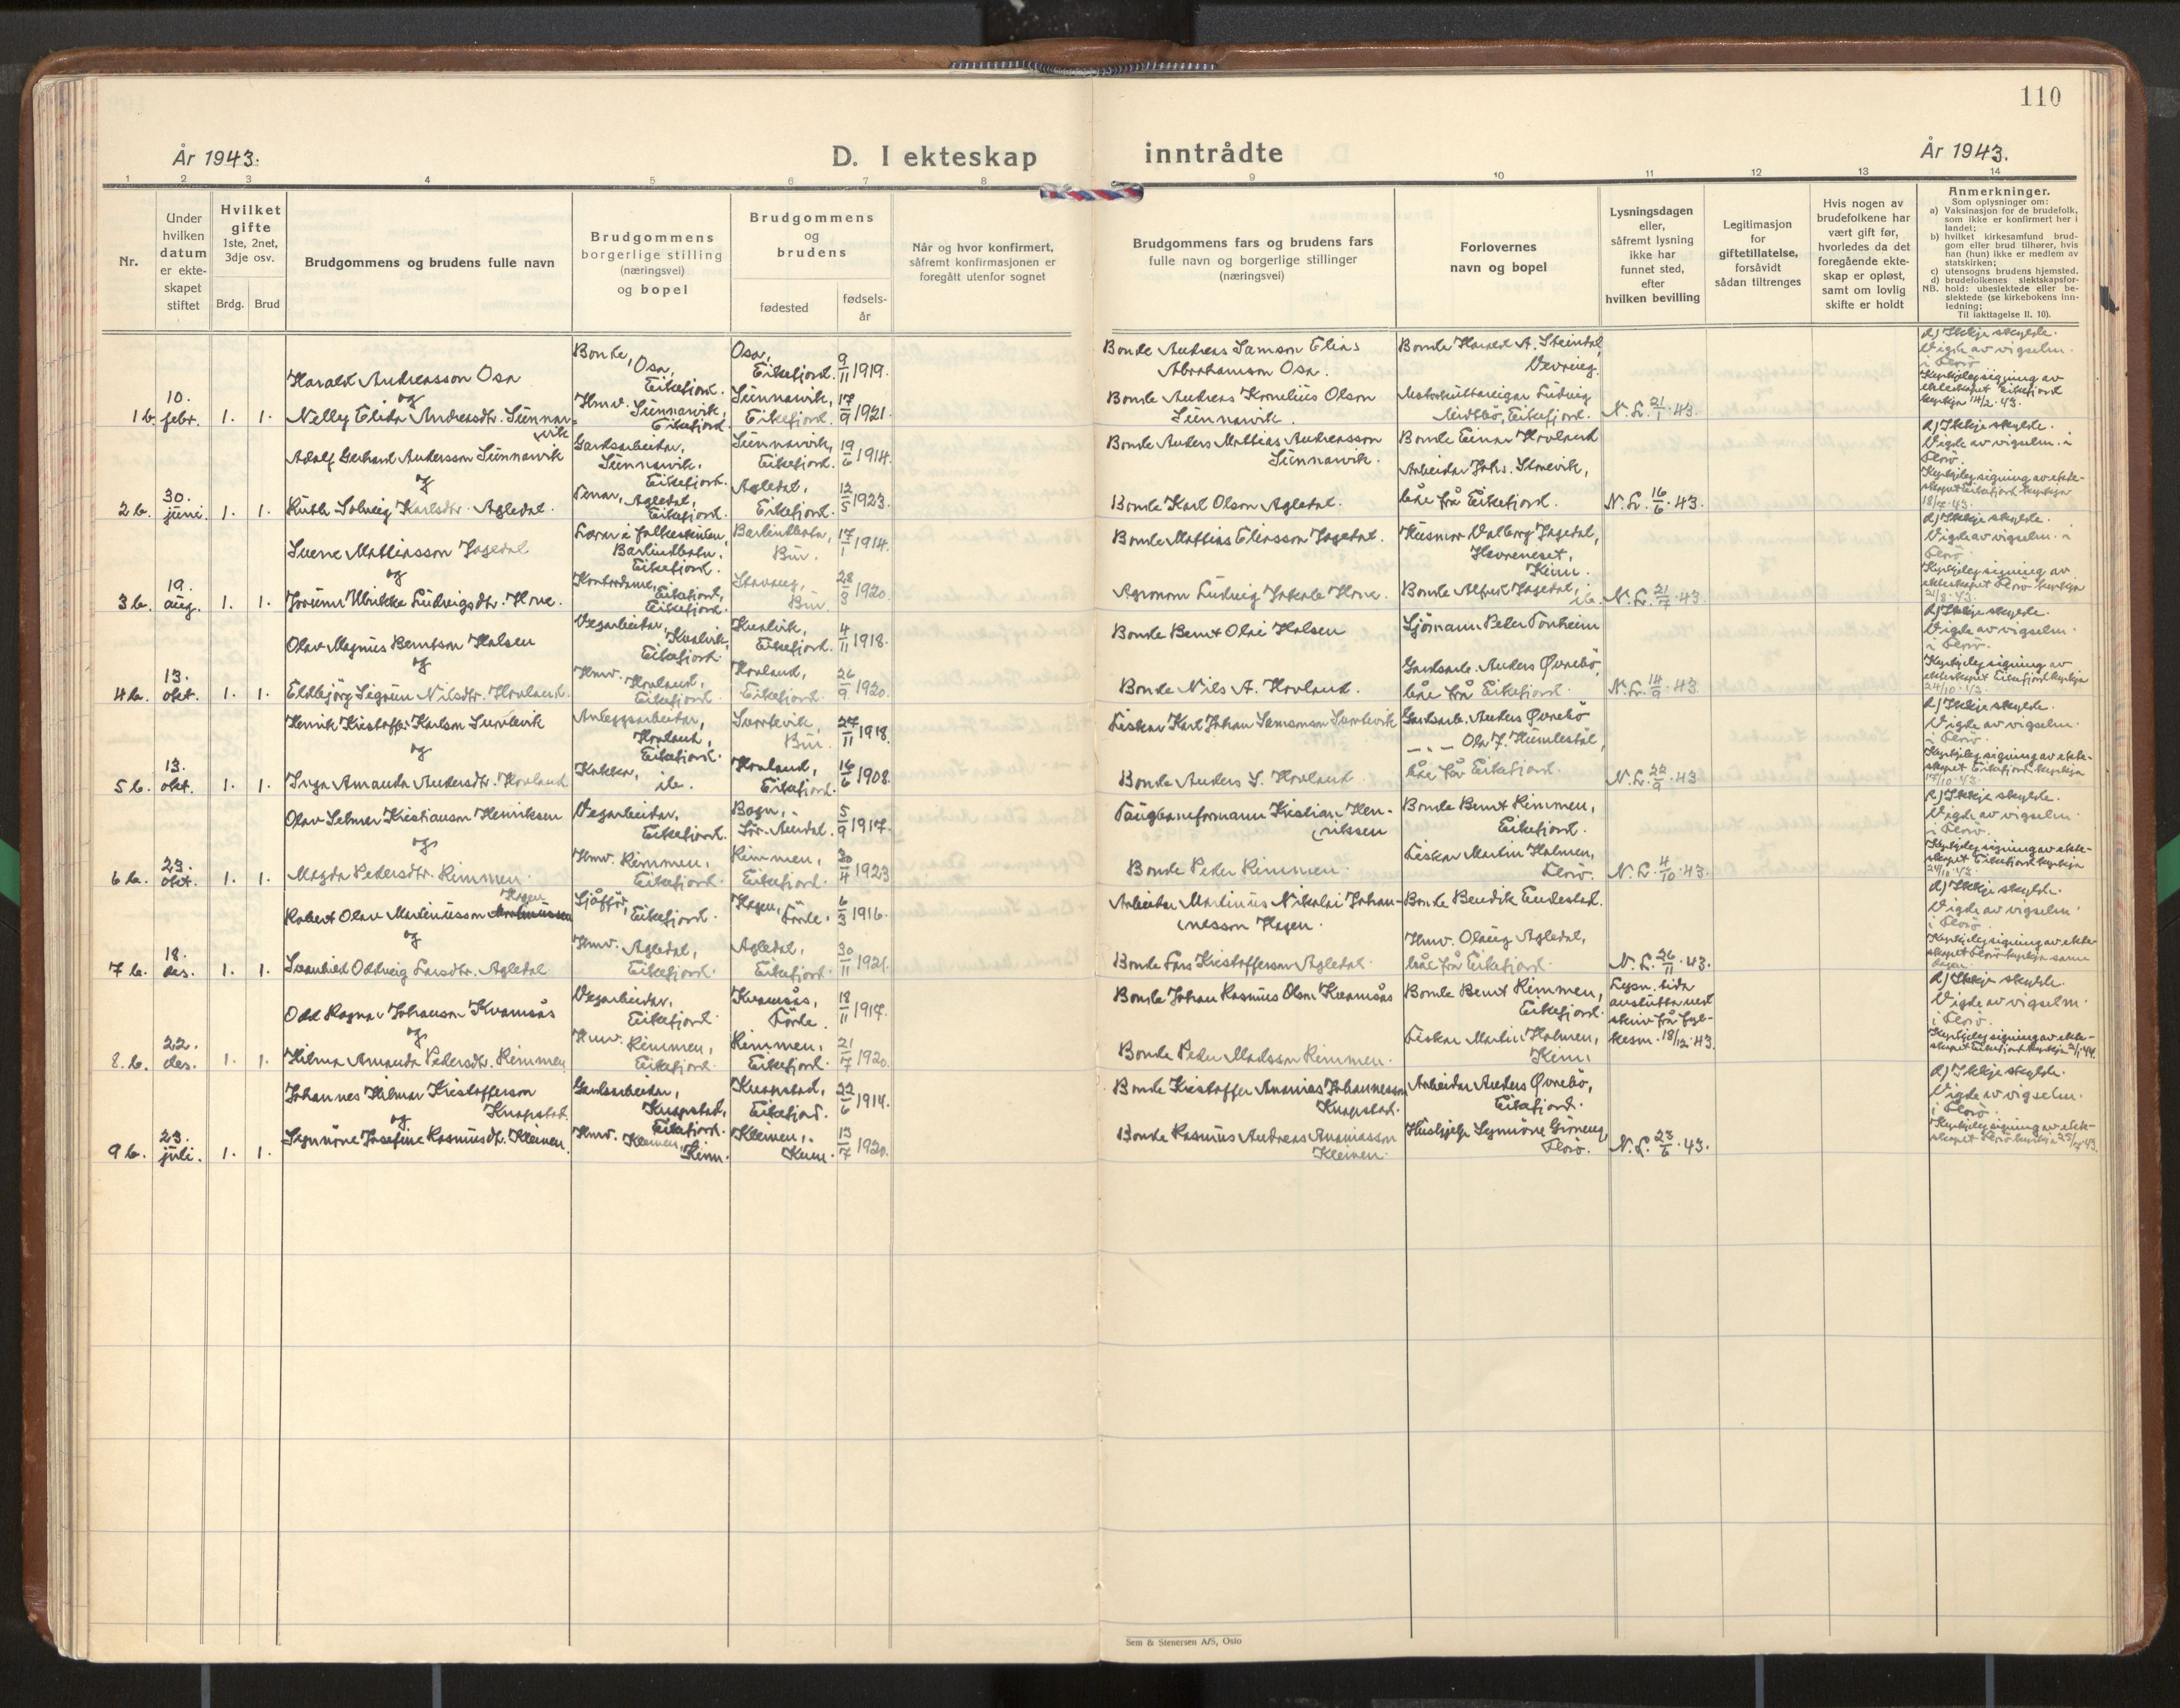 110
År 1943.
D. I ekteskap
inntrådte
År 1943.
1 2 3 4 5 6 7 8 9 10 11 12 13 14
Nr.
Under
hvilken
datum
er ekte-
skapet
stiftet
Hvilket
gifte
1ste, 2net,
3dje osv.
Brdg. Brud
Brudgommens og brudens fulle navn
Brudgommens
borgerlige stilling
(næringsvei)
og bopel
Brudgommens
og
brudens
fødested
fødsels-
år
Når og hvor konfirmert,
såfremt konfirmasjonen er
foregått utenfor sognet
Brudgommens fars og brudens fars
fulle navn og borgerlige stillinger
(næringsvei)
Forlovernes
navn og bopel
Lysningsdagen
eller,
såfremt lysning
ikke har
funnet sted,
efter
hvilken bevilling
Legitimasjon
for
giftetillatelse,
forsåvidt
sådan tiltrenges
Hvis nogen av
brudefolkene har
vært gift før,
hvorledes da det
foregående ekte-
skap er opløst,
samt om lovlig
skifte er holdt
Anmerkninger.
Som oplysninger om:
a) Vaksinasjon for de brudefolk,
som ikke er konfirmert her i
landet;
b) hvilket kirkesamfund brud-
gom eller brud tilhører, hvis
han (hun) ikke er medlem av
statskirken;
c) utensogns brudens hjemsted.
d) brudefolkenes slektskapsfor-
NB. hold: ubeslektede eller be-
slektede (se kirkebokens inn-
ledning;
Til iakttagelse II. 10).
1 b. 10. febr. 1. 1.
Harald Andreasson Osa
og
Nelly Elida Andreasdtr. Sunnar-
vik
Bonde, Osa, Eikefjord.
Hmv. Sunnarvik, Eikefjord.
Osa, Eikefjord. 9/11 1919.
Sunnarvik, Eikefjord. 17/9 1921.
Bonde Andreas Samson Elias
Abrahamson Osa.
Bonde Andreas Kornelius Olson
Sunnarvik.
Bonde Harald A. Steindal,
Ludvig
Midtbö, Eikefjord.
N. L. 21/1 43.
d) Ikkje skylde.
Vigde av vigselm.
i Florö.
Kyrkjeleg signing av
ekteskapet Eikefjord
kyrkja 14/2 43.
2 b. 30. juni. 1. 1.
Adolf Gerhard Andersson Sunnarvik
og
Ruth Solveig Karlsdtr. Agledal.
Gardsarbeidar,
Sunnarvik,
Eikefjord.
Tenar, Agledal,
Eikefjord.
Sunnarvik, Eikefjord. 19/6 1914.
Agledal, Eikefjord. 12/5 1923.
Bonde Anders Mathias Andreasson
Sunnarvik.
Bonde Karl Olson Agledal.
Bonde Einar Hovland
Arbeidar Johs. Starevik,
båe frå Eikefjord.
N. L. 16/6 43.
d) Ikkje skylde.
Vigde av vigselm. i
Florö.
Kyrkjeleg signing av ekte-
skapet Eikefjord kyrkja
18/7 43.
3 b. 19. aug. 1. 1.
Sverre Mathiasson Jagedal
og
Jorunn Ulrikke Ludvigsdtr. Hove.
Lærar i folkeskulen,
Barlindbotn,
Eikefjord.
Kontordame, Eikefjord,
Eikefjord.
Barlindbotn, Bru. 17/1 1914.
Stavang, Bru. 28/3 1920.
Bonde Mathias Eliasson Jagedal.
Agronom Ludvig Jakob Hove.
Husmor Valborg Jagedal,
Hovreneset,
Kinn.
Bonde Alfred Jagedal, ib.
N. L. 21/7 43.
d) Ikkje skylde.
Vigde av vigselm. i
Florö
Kyrkjeleg signing av
ekteskapet Florö kyrkja
21/8 43.
4 b. 13. okt. 1. 1.
Olav Magnus Berntson Halsen
og
Eldbjörg Sigrun Nilsdtr. Hovland.
Vegarbeidar,
Kvalvik,
Eikefjord.
Hmv. Hovland,
Eikefjord.
Kvalvik, Eikefjord. 4/11 1918.
Hovland, Eikefjord. 26/9 1920.
Bonde Bernt Olai Halsen
Bonde Nils A. Hovland.
Sjömann Peder Tonheim
Gardsarb. Anders Øvrebö,
båe frå Eikefjord.
N. L. 14/9 43.
d) Ikkje skylde.
Vigde av vigselm.
i Florö.
Kyrkjeleg signing av
ekteskapet Eikefjord kyrkja
24/10 43.
5 b. 13. okt. 1. 1.
Henrik Kristoffer Karlson Sunnlevik
og
Inga Amanda Andersdtr. Hovland
Anleggsarbeidar,
Hovland,
Eikefjord.
Kokka, ib.
Bru. 27/11 1918.
Hovland, Eikefjord. 16/6 1908.
Fiskar Karl Johan Samsonson
Bonde Anders S. Hovland.
Gardsarb. Anders Øvrebö
— „ — Ola J. Humlestöl,
båe frå Eikefjord.
N. L. 22/9 43
d) Ikkje skylde.
Vigde av vigselm.
i Florö.
Kyrkjeleg signing av ekte-
skapet Eikefjord kyrkja
17/10 43.
6 b. 23. okt. 1. 1.
Olav Selmer Kristianson Henriksen
og
Magda Pedersdtr. Rimmen.
Vegarbeidar,
Eikefjord.
Hmv. Rimmen,
Eikefjord.
Bagn, Sör-Aurdal. 5/9 1917.
Rimmen, Eikefjord. 30/4 1923
Taugbaneformann Kristian Hen-
riksen
Bonde Peder Rimmen.
Bonde Bernt Rimmen,
Eikefjord.
Fiskar Martin Holmen,
Florö.
N. L. 4/10 43.
d) Ikkje skylde.
Vigde av vigselm.
i Florö.
Kyrkjeleg signing av ekte-
skapet Eikefjord kyrkja
24/10 43.
7 b. 18. des. 1. 1.
Hagen
Robert Olav Martinusson
og
Svanhild Oddveig Larsdtr. Agledal
Sjåfför,
Eikefjord.
Hmv. Agledal,
Eikefjord.
Hagen, Förde. 6/3 1916.
Agledal, Eikefjord. 30/11 1921.
Arbeidar Martinus Nikolai Johan-
nesson Hagen.
Bonde Lars Kristofferson Agledal.
Bonde Bendik Endestad.
Hmv. Olaug Agledal,
båe frå Eikefjord.
N. L. 26/11 43.
d) Ikkje skylde.
Vigde av vigselm.
i Florö.
Kyrkjeleg signing av ekte-
skapet Florö kyrkja same
dagen.
8. b. 22. des. 1. 1.
Odd Ragnar Johanson Kvamsås
og
Hilma Amanda Pedersdtr. Rimmen
Vegarbeidar,
Eikefjord.
Hmv. Rimmen,
Eikefjord.
Kvamsås, Förde. 18/11 1917.
Rimmen, Eikefjord. 21/7 1920.
Bonde Johan Rasmus Olson Kvamsås
Bonde Peder Madsson Rimmen.
Bonde Bernt Rimmen,
Eikefjord.
Fiskar Martin Holmen,
Kinn
Lysn. tida
avslutta ved
skriv frå fyl-
kesm. 18/12 43.
d) Ikkje skylde.
Vigde av vigselm.
i Florö.
Kyrkjeleg signing av ekte-
skapet Eikefjord kyrkja 2/1 44.
9 b. 23. juli. 1. 1.
Johannes Hilmar Kristofferson
Knapstad
og
Synnöve Josefine Rasmusdtr. Kleiven.
Gardsarbeidar,
Knapstad,
Eikefjord.
Hmv. Kleiven, Kinn.
Knapstad, Eikefjord. 22/6 1914.
Kleiven, Kinn. 13/7 1920.
Bonde Kristoffer Ananias Johannesson
Knapstad.
Bonde Rasmus Andreas Ananiasson
Kleiven.
Arbeidar Anders Øvrebö,
Eikefjord.
Hushjelp Synnöve Gröneng,
Florö.
N. L. 23/6 43.
d) Ikkje skylde.
Vigde av vigselm.
i Florö.
Kyrkjeleg signing av ekte-
skapet Florö kyrkja 25/7 43.
Sem & Stenersen A/S, Oslo